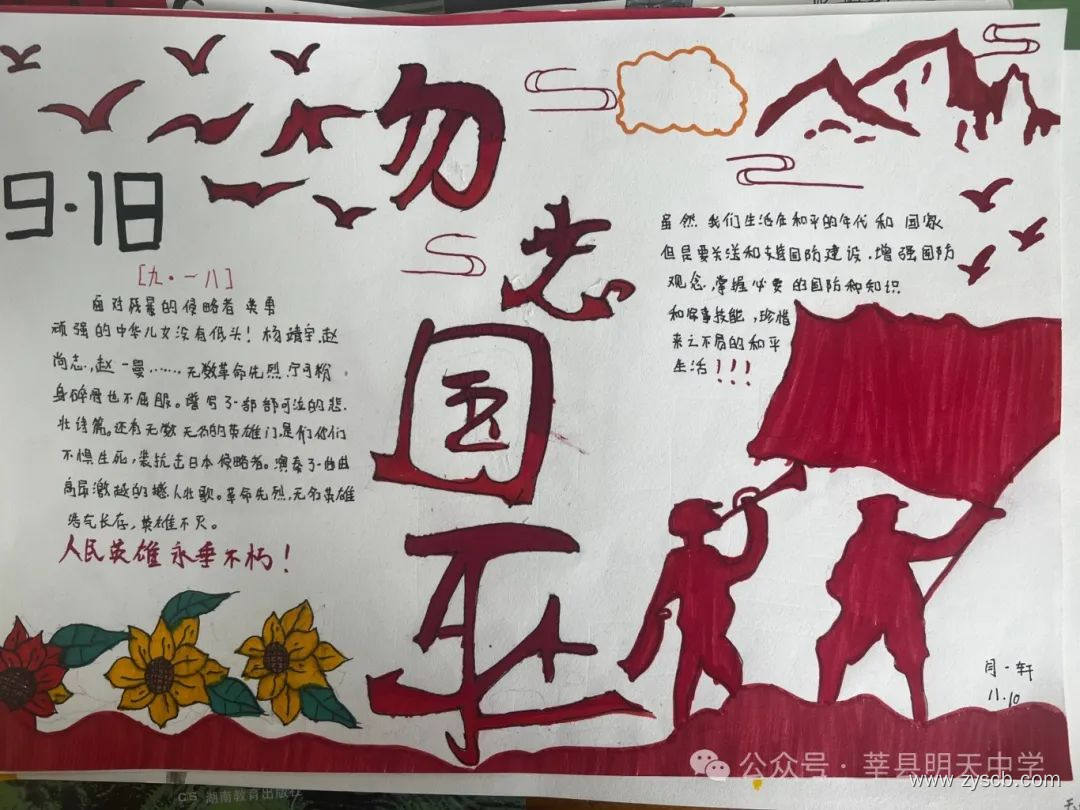 勿忘国耻
9·18
[九·一八]
面对残暴的侵略者 英勇
顽强的中华儿女没有低头！杨靖宇,赵
尚志,赵一曼……无数革命先烈.宁可粉
身碎骨也不屈服。谱写了一部部可泣的悲
壮诗篇。还有无数无名的英雄门,是们你们
不惧生死,英抗击日本侵略者。演奏了一曲曲
高昂激越的撼人壮歌。革命先烈.无名英雄
浩气长存,英雄不灭。
人民英雄永垂不朽！
虽然我们生活在和平的年代和国家
但是要关注和支援国防建设.增强国防
观念,掌握必要的国防和知识
和军事技能,珍惜
来之不易的和平
生活!!!
闫一轩
11.10
公众号·莘县明天中学
www.zyscb.com
湖南教育出版社